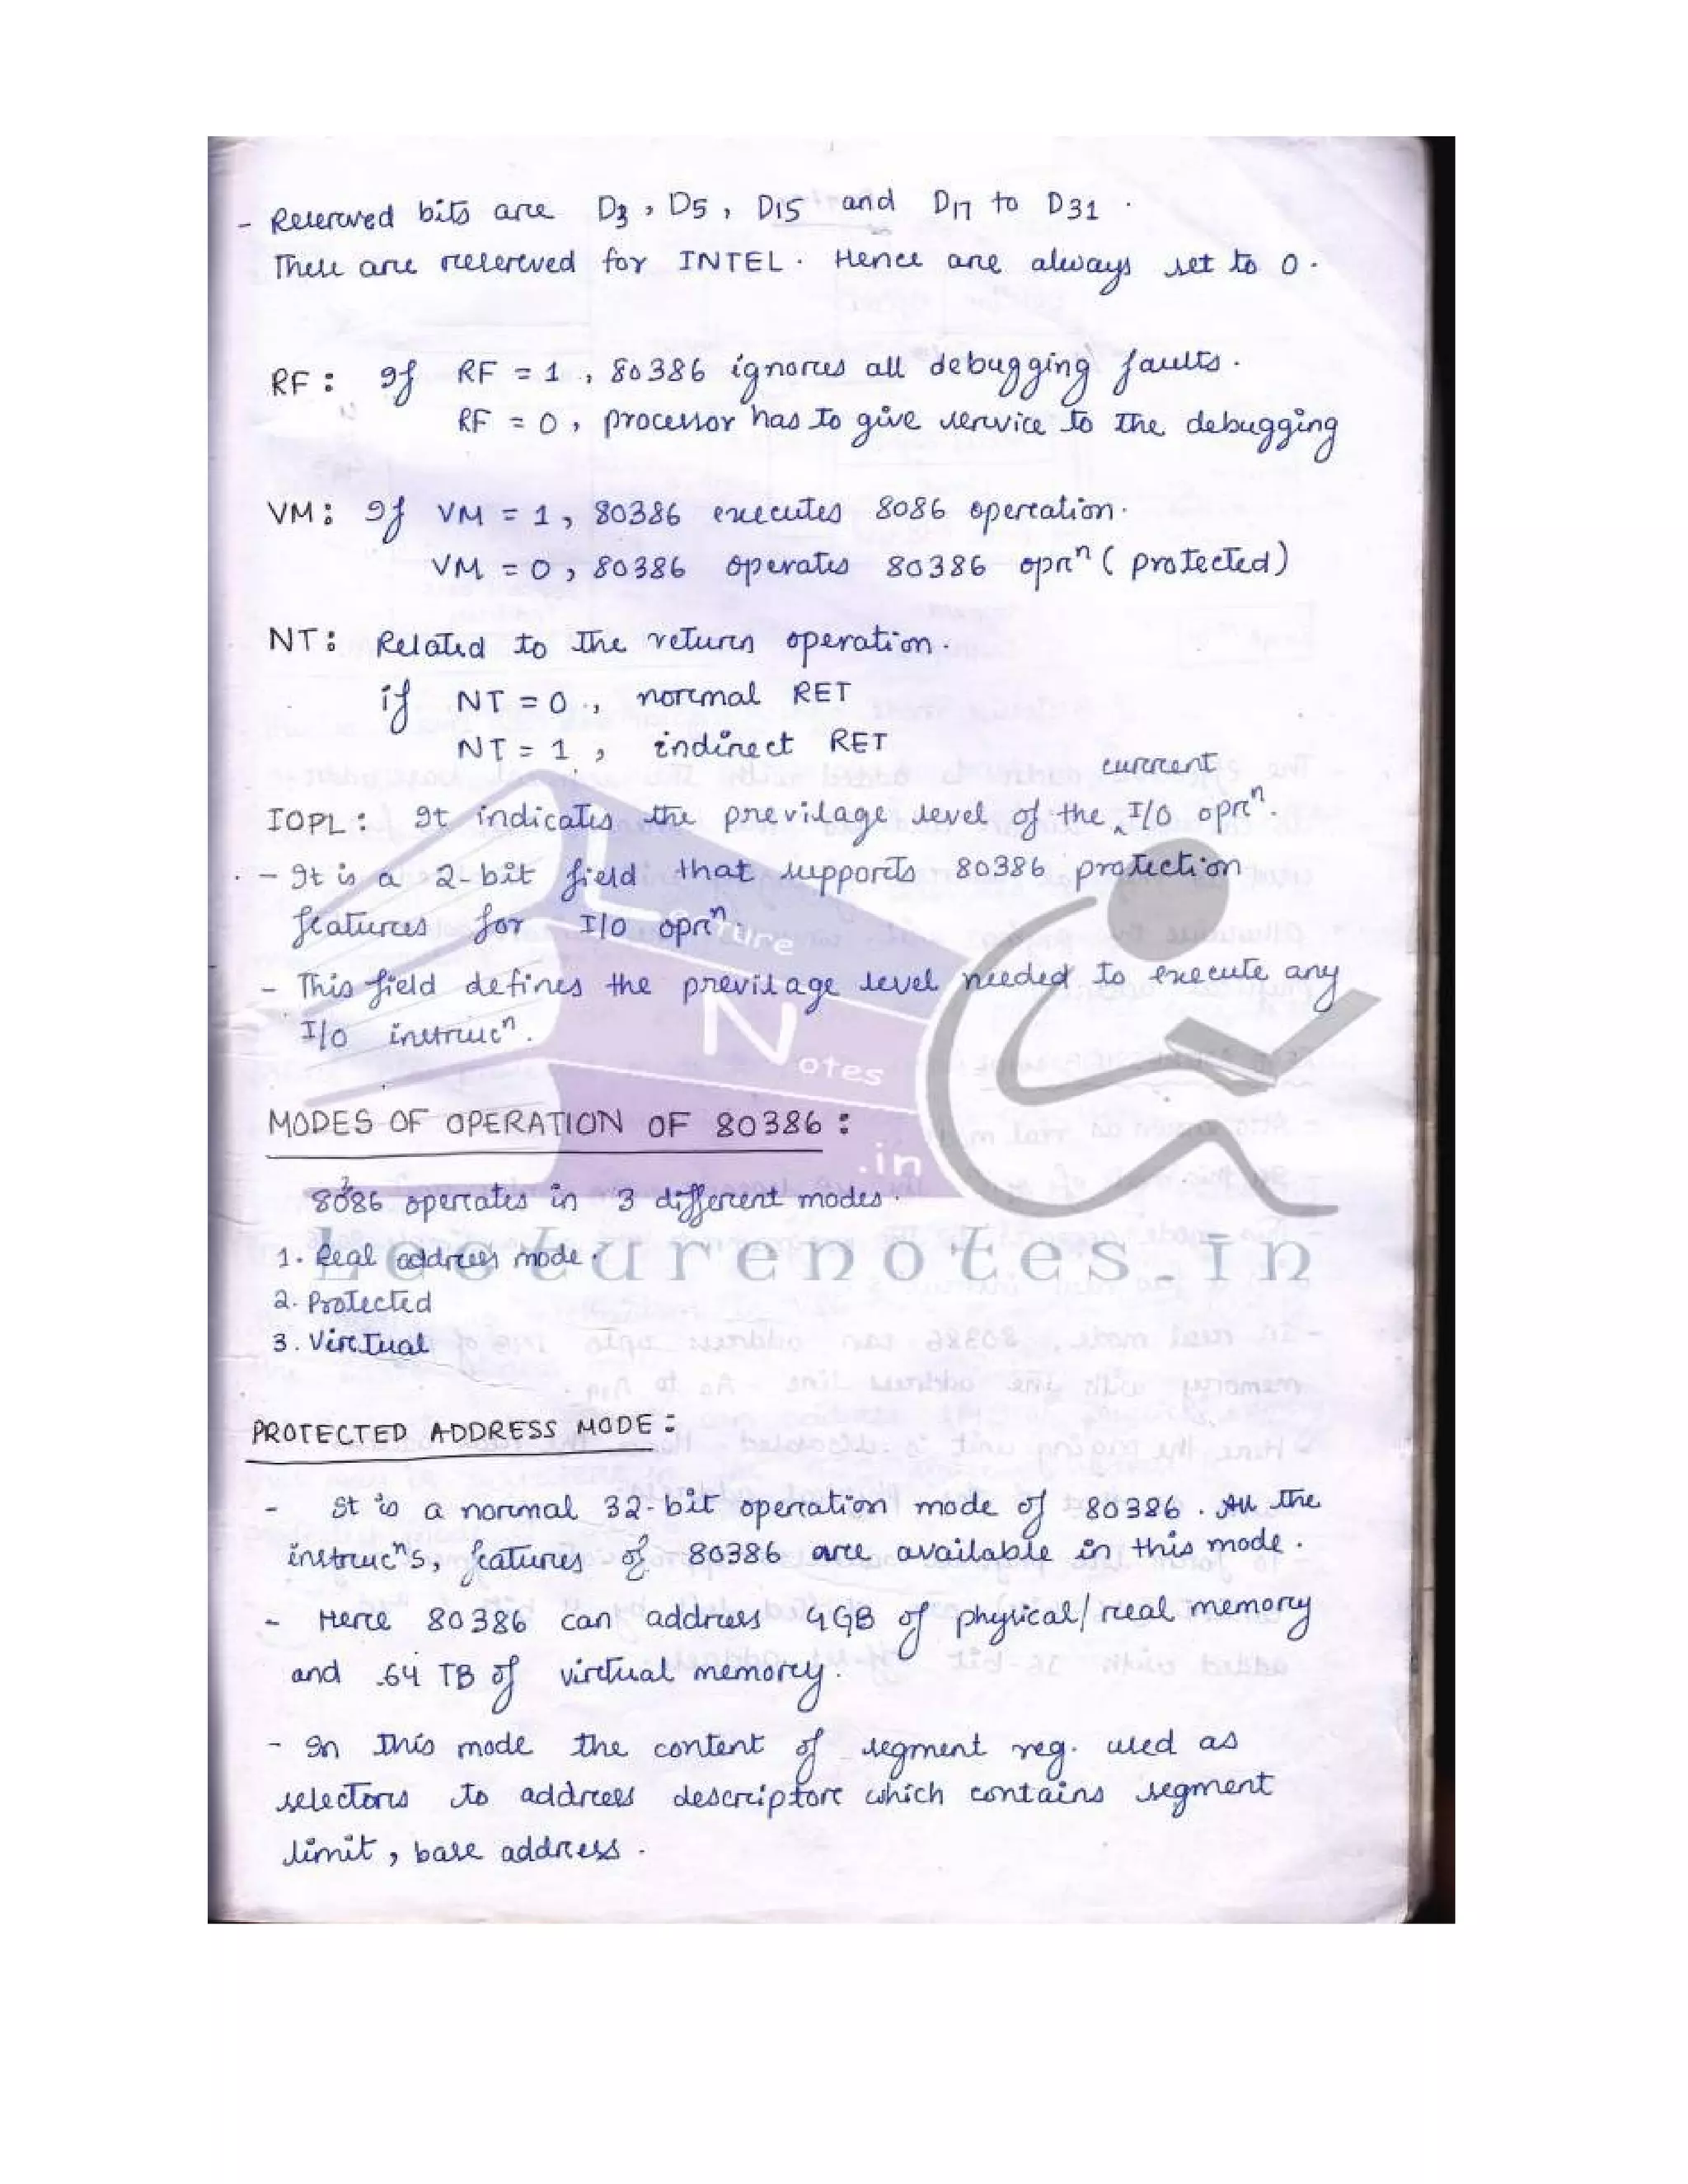 - Reserved bits are D3, D5, D15 and D17 to D31.
These are reserved for INTEL. Hence are always set to 0.
RF: If RF = 1, 80386 ignores all debugging faults.
RF = 0, processor has to give service to the debugging
VM: If VM = 1, 80386 executes 8086 operation.
VM = 0, 80386 operates 80386 oprⁿ (protected)
NT: Related to the return operation.
if NT = 0, normal RET
NT = 1, indirect RET
current
IOPL: It indicates the previlage level of the ‸ I/O oprⁿ.
- It is a 2-bit field that supports 80386 protection
features for I/O oprⁿ.
- This field defines the previlage level needed to execute any
I/O instrucⁿ.
MODES OF OPERATION OF 80386:
80386 operates in 3 different modes.
1. Real address mode.
2. Protected
3. Virtual
PROTECTED ADDRESS MODE:
- It is a normal 32-bit operation mode of 80386. All the
instrucⁿs, features of 80386 are available in this mode.
- Here 80386 can address 4GB of physical/real memory
and 64 TB of virtual memory.
- In this mode the content of segment reg. used as
selectors to address descriptor which contains segment
limit, base address.
Lecture
Notes
.in
Lecturenotes.in